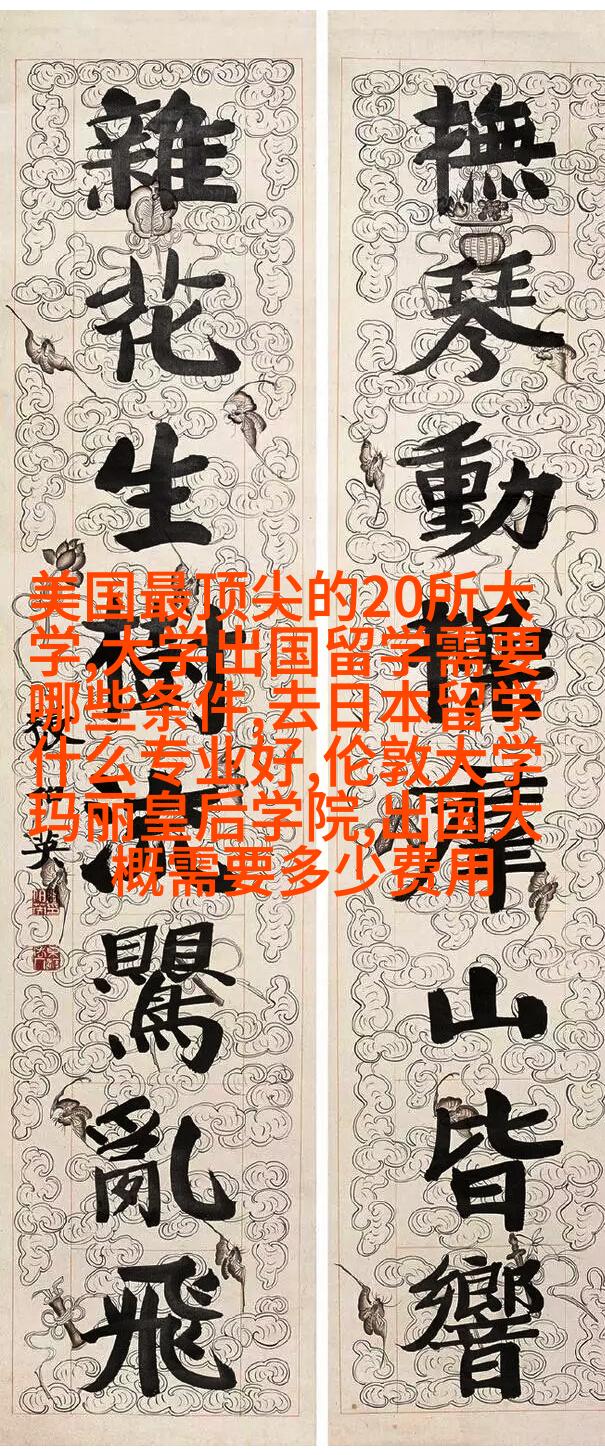 撫琴動操山皆響
雜花生樹鸎亂飛
英
美国最顶尖的20所大
学,大学出国留学需要
哪些条件,去日本留学
什么专业好,伦敦大学
玛丽皇后学院,出国大
概需要多少费用